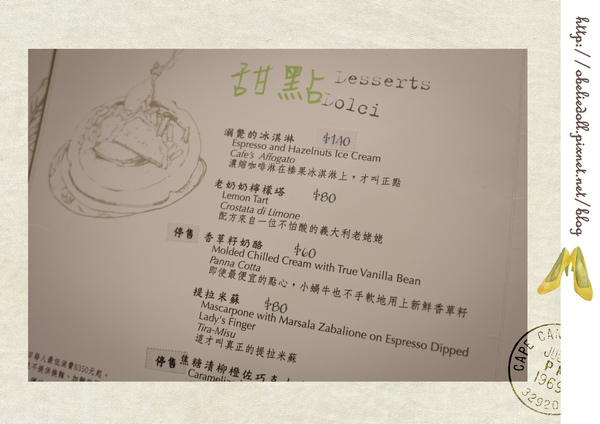 甜點 Desserts
Dolci
溺斃的冰淇淋 $140
Espresso and Hazelnuts Ice Cream
Cafe's Affogato
濃縮咖啡淋在榛果冰淇淋上，才叫正點
老奶奶檸檬塔 $80
Lemon Tart
Crostata di Limone
配方來自一位不怕酸的義大利老姥姥
停售 香草籽奶酪 $60
Molded Chilled Cream with True Vanilla Bean
Panna Cotta
即使最便宜的點心，小蝸牛也不手軟地用上新鮮香草籽
提拉米蘇 $80
Mascarpone with Marsala Zabalione on Espresso Dipped
Lady's Finger
Tira-Misu
這才叫真正的提拉米蘇
停售 焦糖清柳橙佐巧克
每人最低消費$350元起。
http://obeliedoll.pixnet.net/blog
CAPE CAN
1969
32920